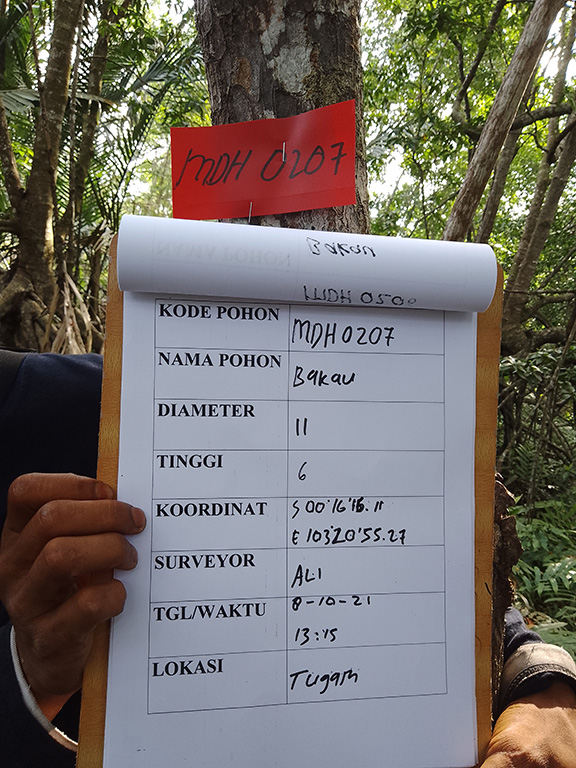 MDH 0207
Bakau
MDH 020
KODE POHON MDH 0207
NAMA POHON Bakau
DIAMETER 11
TINGGI 6
KOORDINAT S 00°16'16.11
E 103°20'55.27
SURVEYOR ALI
TGL/WAKTU 8-10-21
13:15
LOKASI Tugam